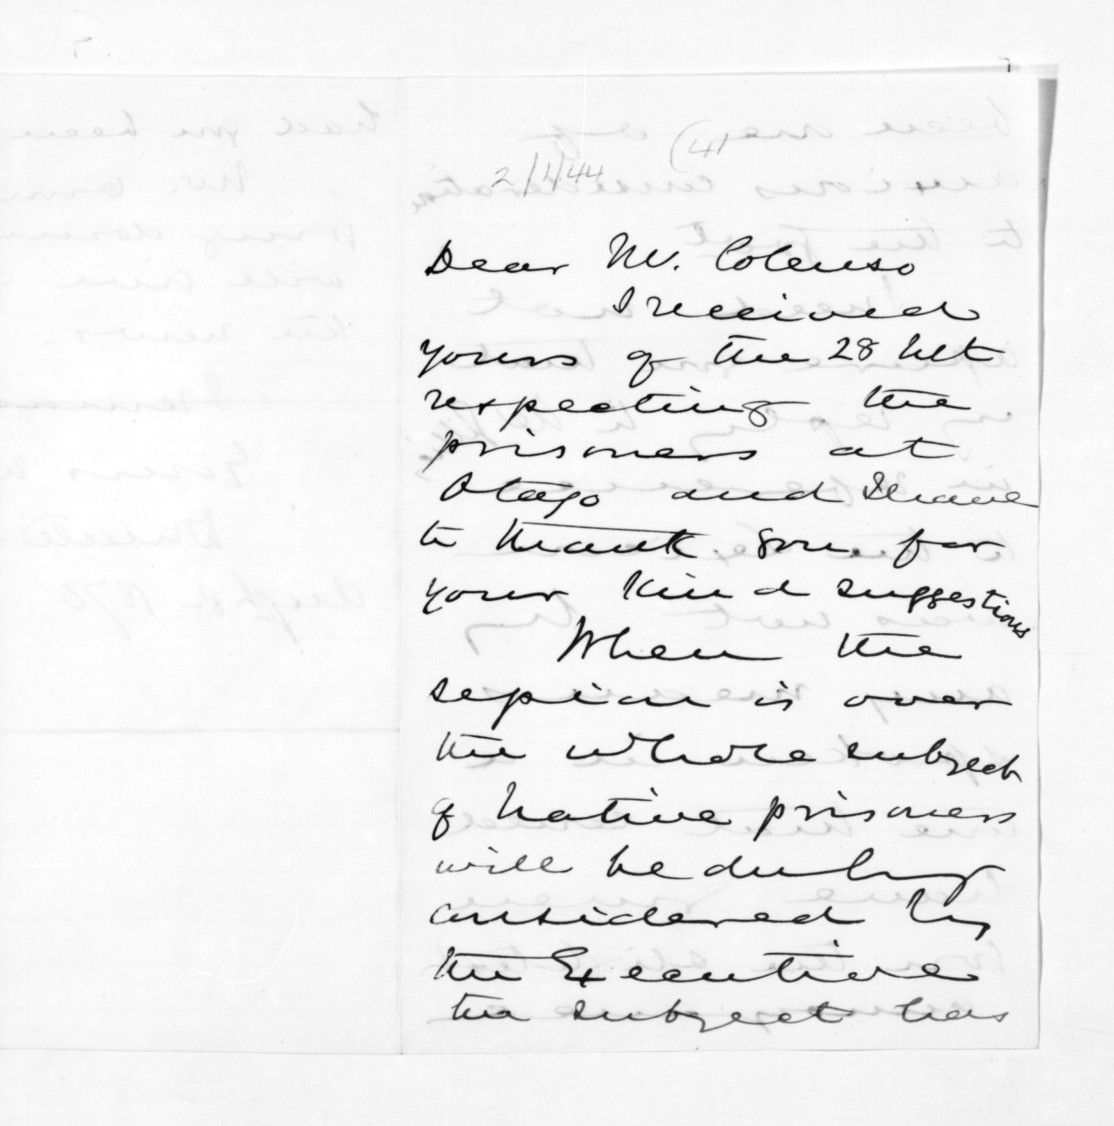 (41
2/1/44
Dear Mr. Colenso
I received
yours of the 28 Ult
respecting the
prisoners at
Otago and I have
to thank you for
your kind suggestions
When the
session is over
the whole subject
of Native prisoners
will be duly
considered by
the Executive
the subject has